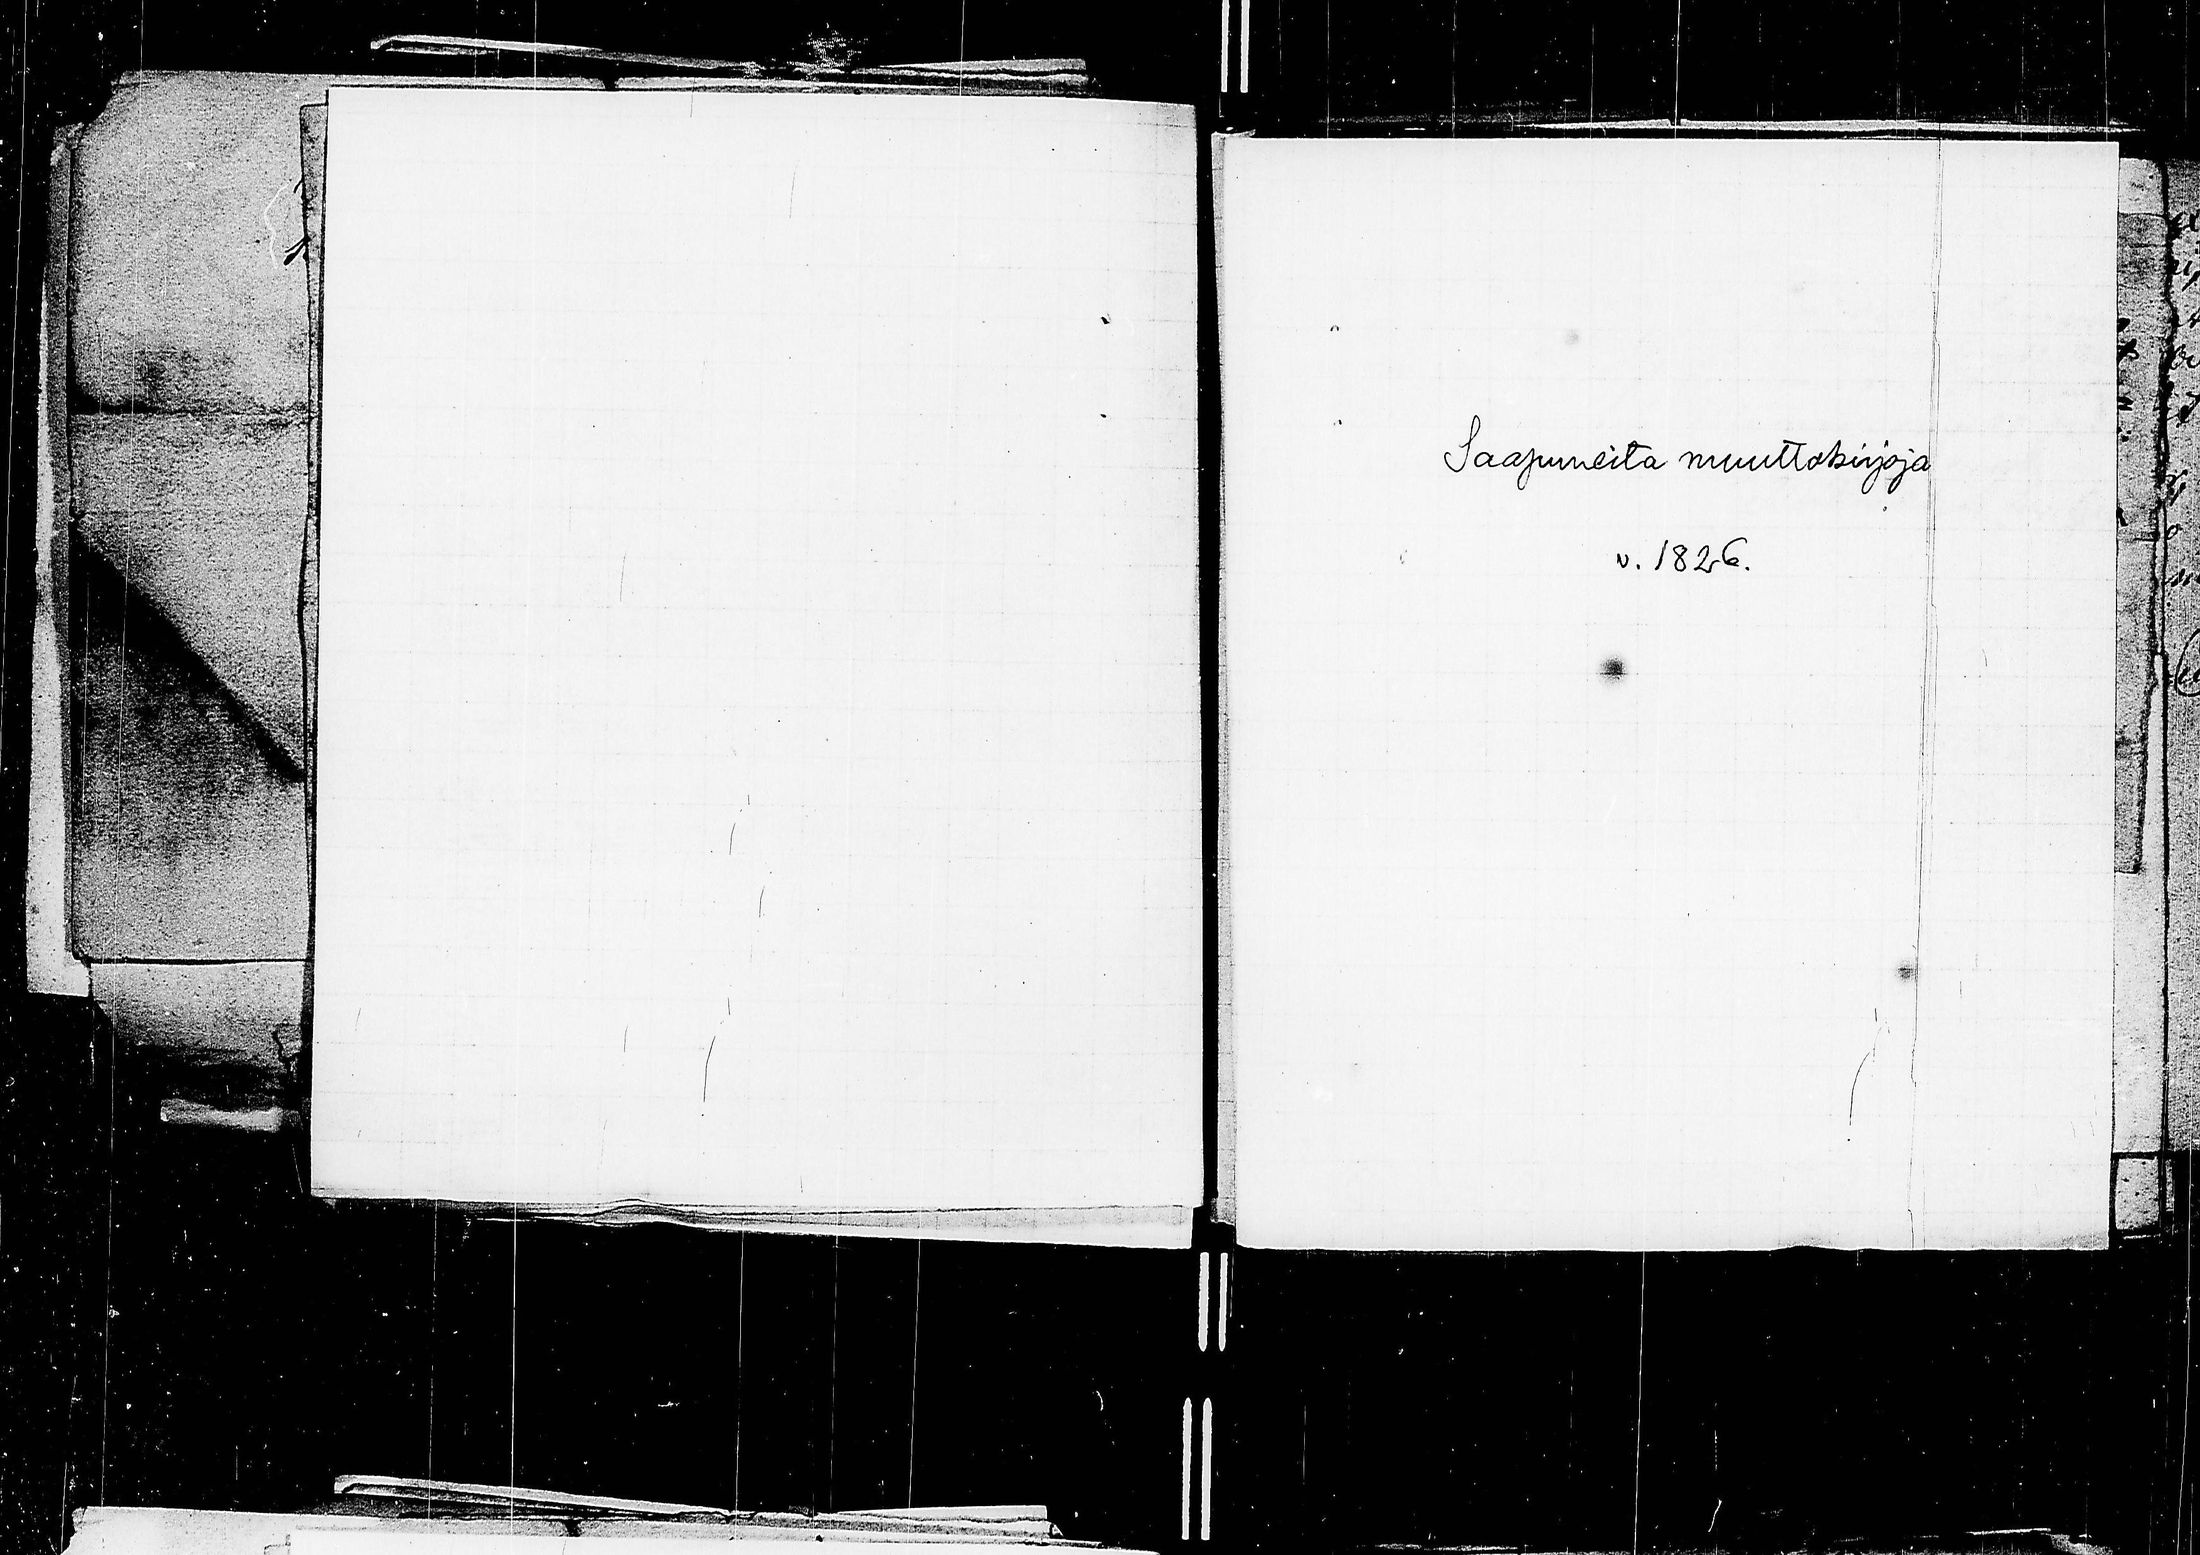 Saapuneita muuttokirjoja
v. 1826.